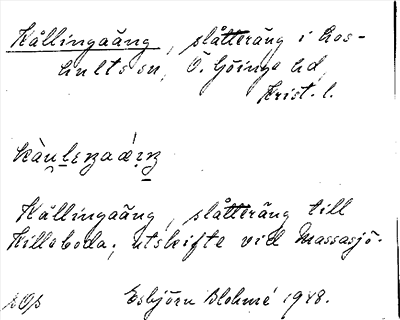 Kållingaäng, slåtteräng i Loshults sn, Ö. Göinge hd,
Krist. l.
Kållingaäng, slåtteräng till
Killeboda; utskifte vid Massasjö.
Esbjörn Blohmé 1948.